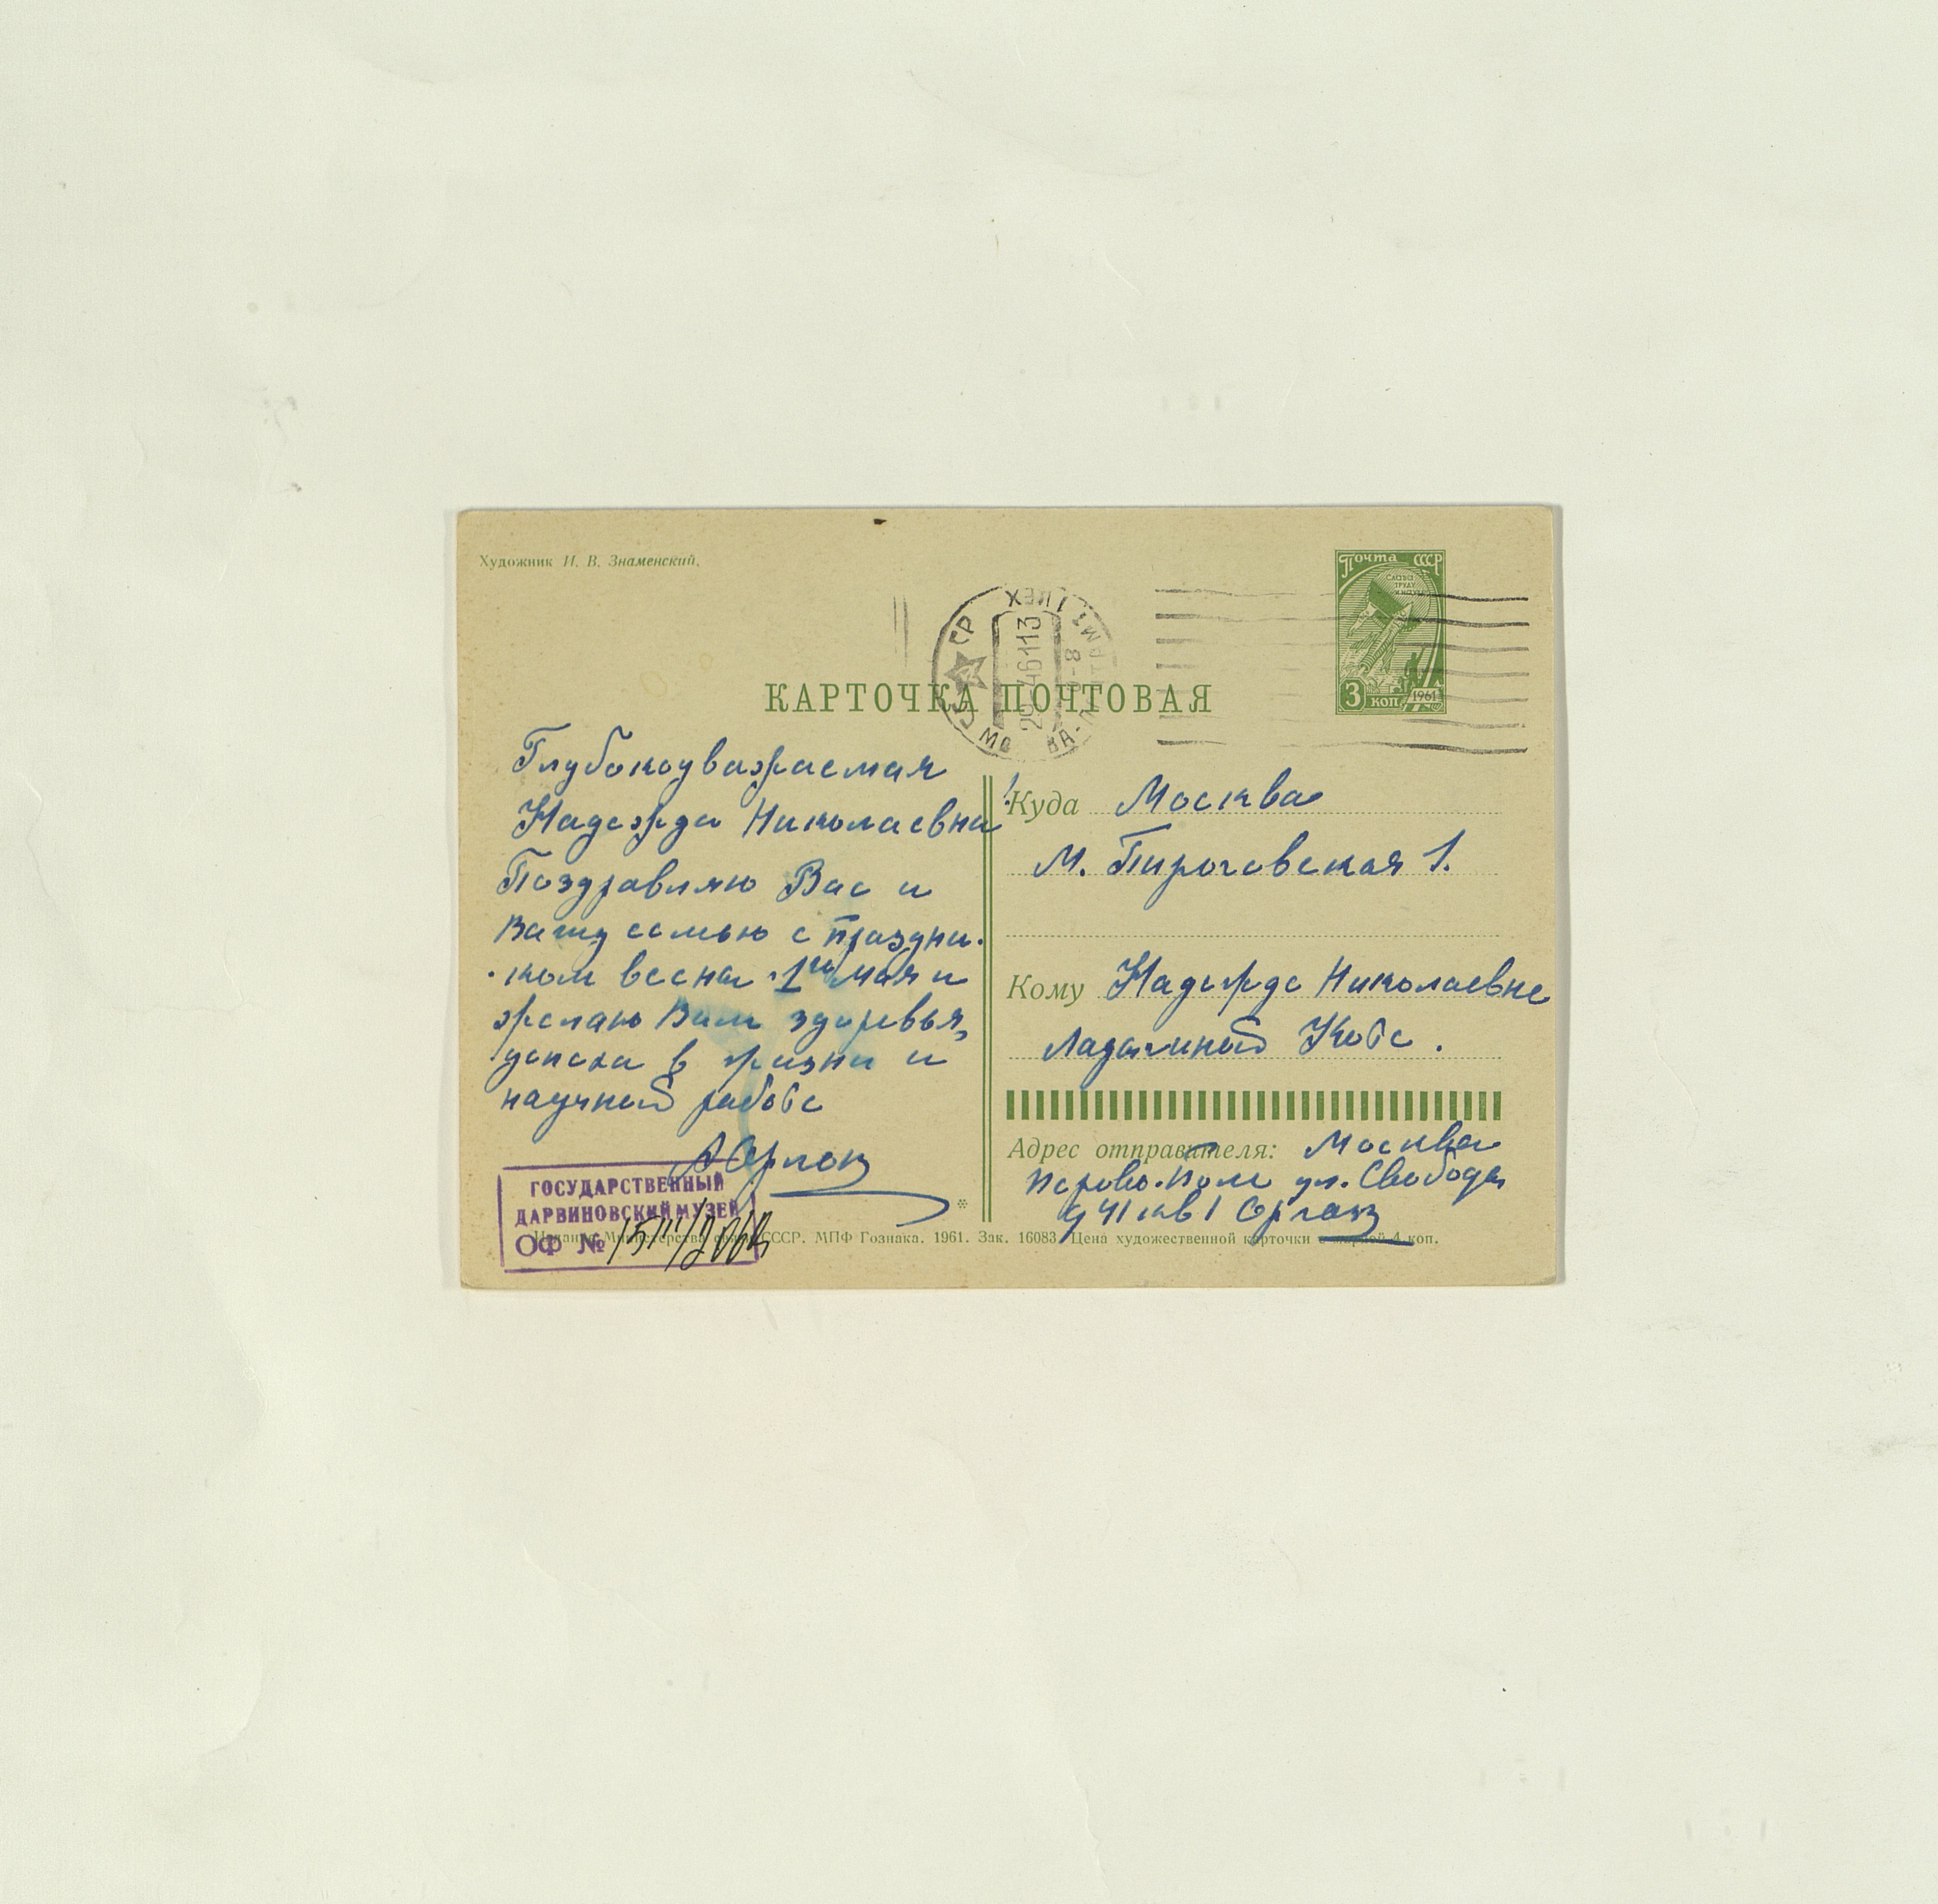 Художник И. В. Знаменский.
Почта СССР
СЛАВА
ТРУДУ
3 коп
1961
КАРТОЧКА ПОЧТОВАЯ
Глубокоуважаемая
Надежда Николаевна!
Поздравляю Вас и
Вашу семью с праздни-
-ком весны 1го мая и
желаю Вам здоровья,
успеха в жизни и
научной работе
ГОСУДАРСТВЕННЫЙ
ДАРВИНОВСКИЙ МУЗЕЙ
ОФ №
Издание Министерства связи СССР. МПФ Гознака. 1961. Зак. 16083. Цена художественной карточки с маркой 4 коп.
Куда Москва
М. Пироговская 1.
Кому Надежде Николаевне
Ладыгиной Котс.
Адрес отправителя: Москва
Перово-Поле ул. Свободы
д 41 кв 1